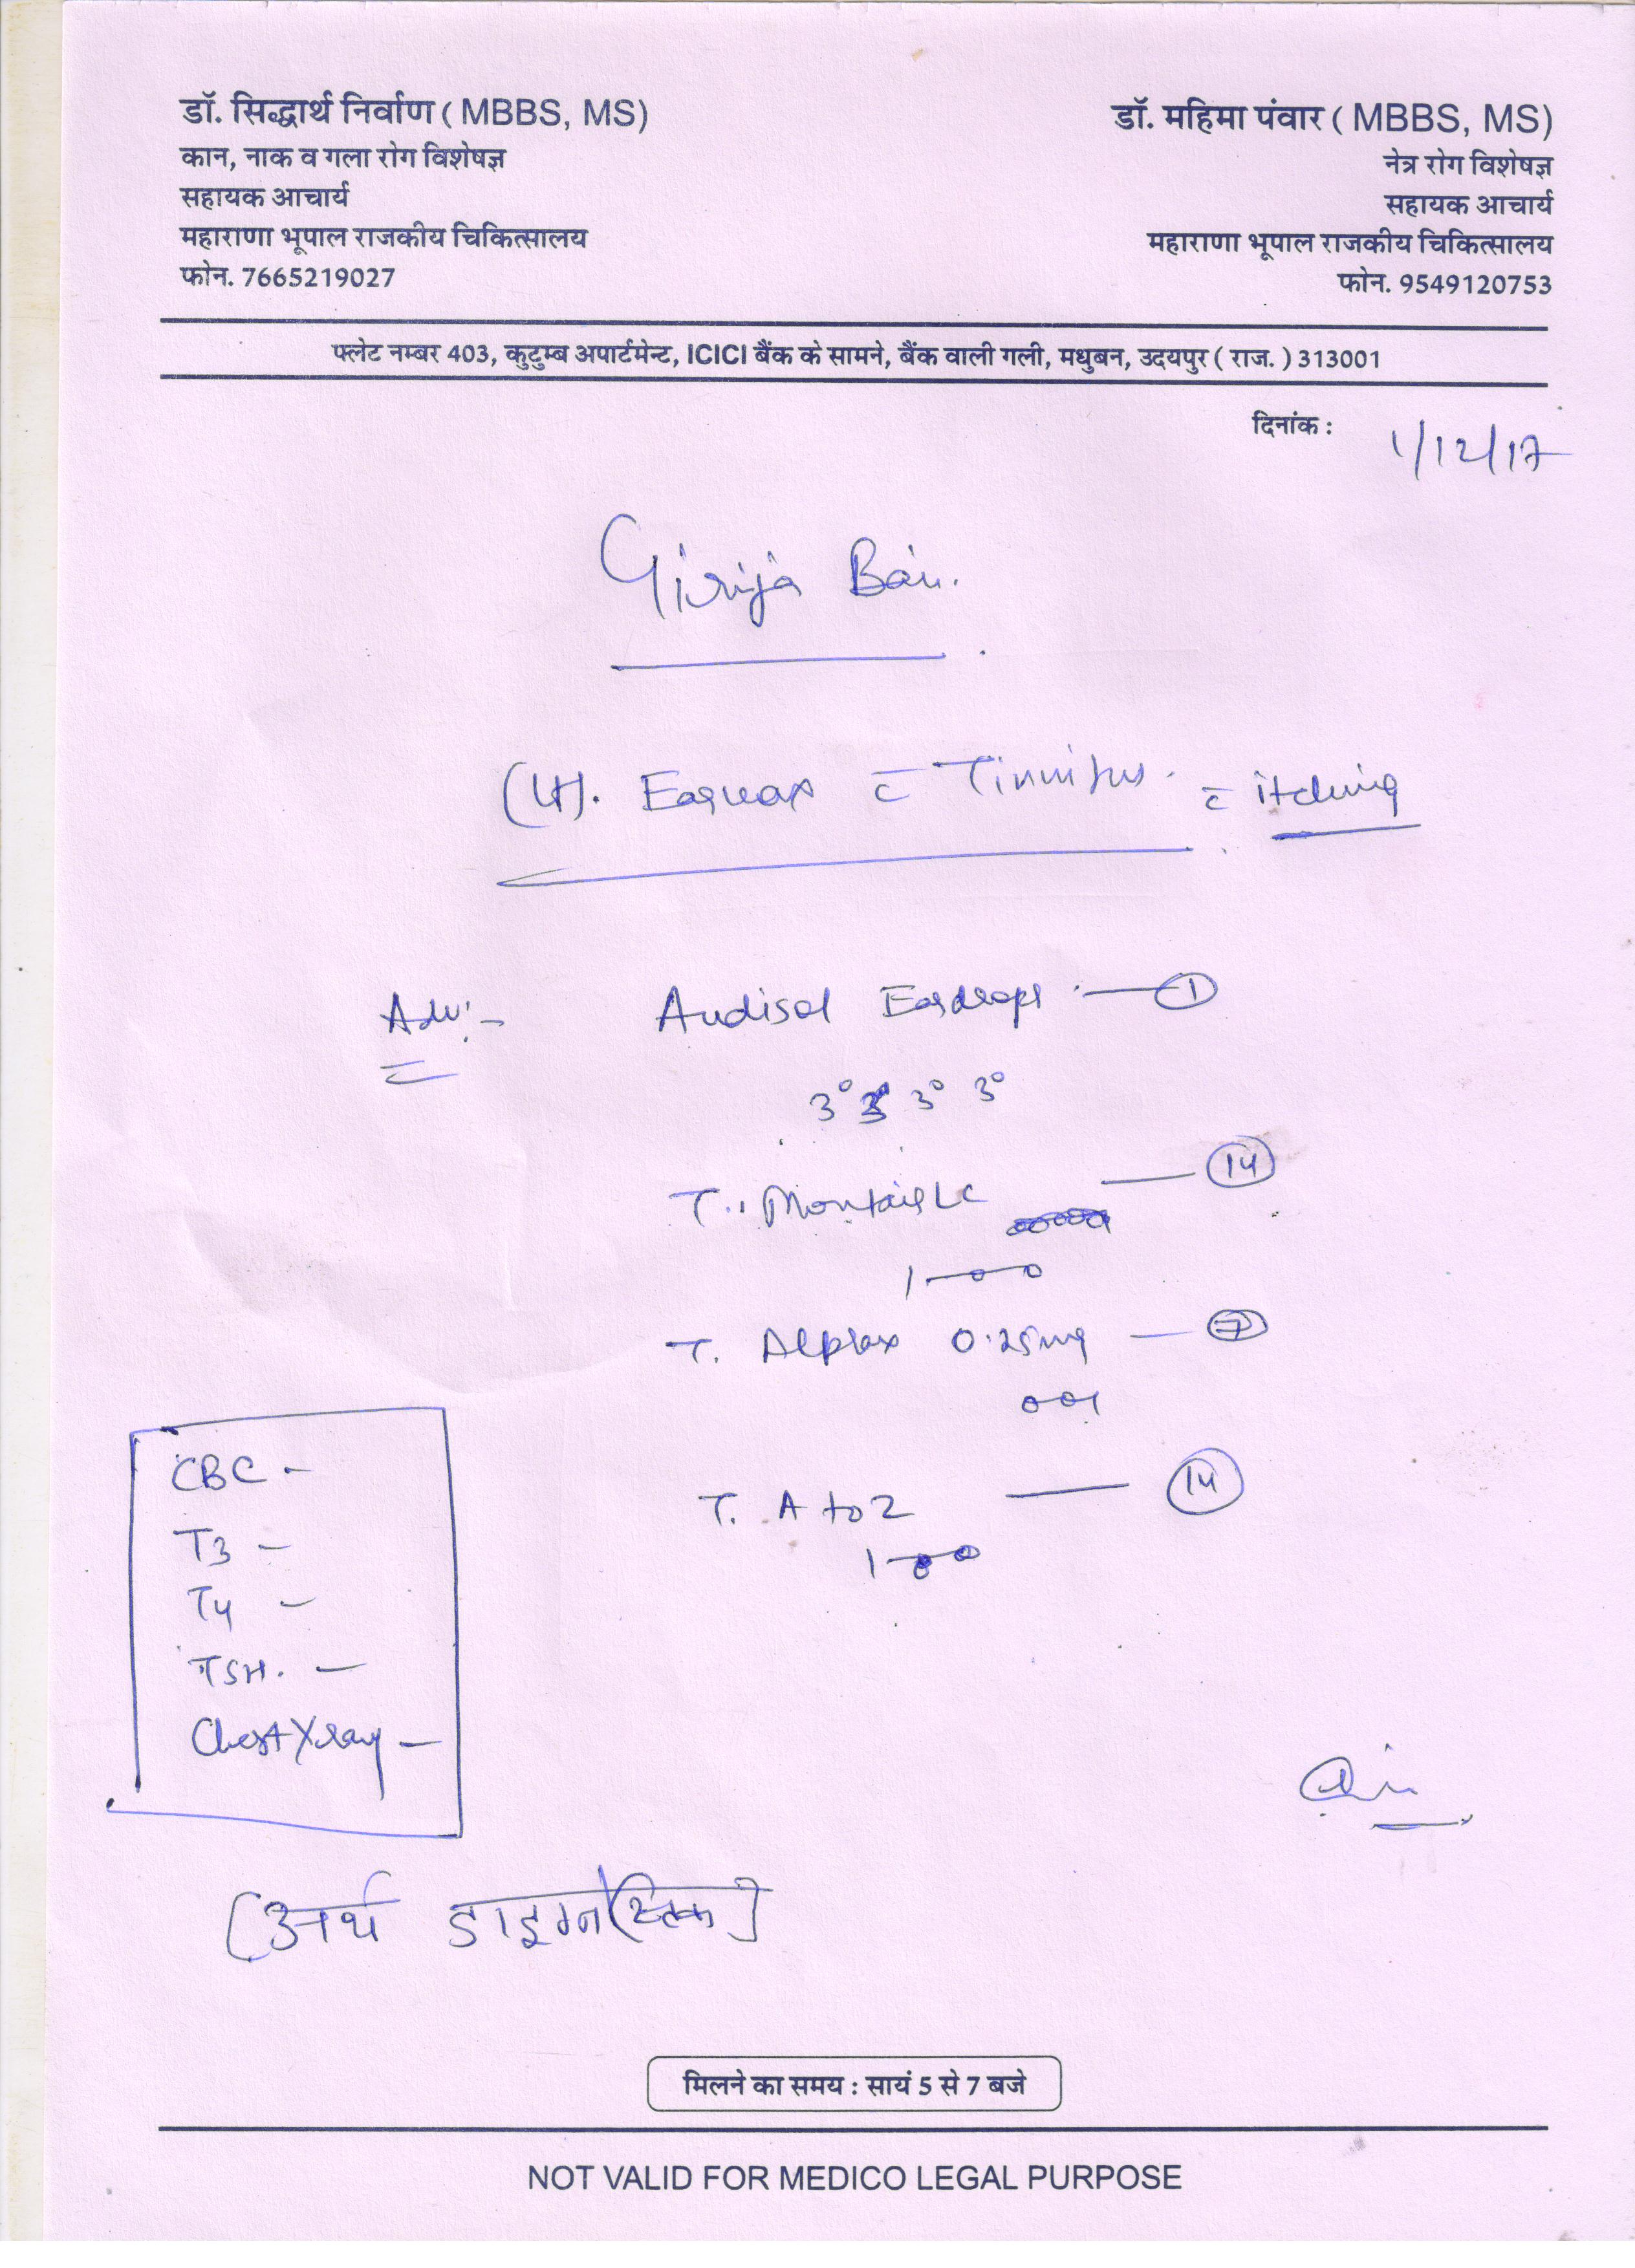 डॉ. सिद्धार्थ निर्वाण ( MBBS, MS)
कान, नाक व गला रोग विशेषज्ञ
सहायक आचार्य
महाराणा भूपाल राजकीय चिकित्सालय
फोन. 7665219027
डॉ. महिमा पंवार ( MBBS, MS)
नेत्र रोग विशेषज्ञ
सहायक आचार्य
महाराणा भूपाल राजकीय चिकित्सालय
फोन. 9549120753
फ्लेट नम्बर 403, कुटुम्ब अपार्टमेन्ट, ICICI बैंक के सामने, बैंक वाली गली, मधुबन, उदयपुर ( राज. ) 313001
दिनांक : 1/12/17
Girija Bai.
Earwax c̄ Tinnitus. c̄ itching
Adv:- Audisol Eardrops — 1
3° 3° 3°
T. Montair LC — 14
1—0—0
T. Alprax 0.25mg — 7
0 0 1
T. A to Z — 14
1—0—0
CBC -
T3 -
T4 -
TSH. -
Chest Xray -
[अर्थ डाइग्नोस्टिक]
मिलने का समय : सायं 5 से 7 बजे
NOT VALID FOR MEDICO LEGAL PURPOSE